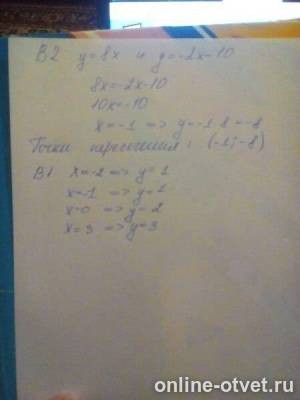 В2 y=8x и y=-2x-10
8x=-2x-10
10x=-10
x=-1 => y=-1·8=-8
Точки пересечения: (-1;-8)
В1 x=-2 => y=1
x=-1 => y=1
x=0 => y=2
x=3 => y=3
online-otvet.ru